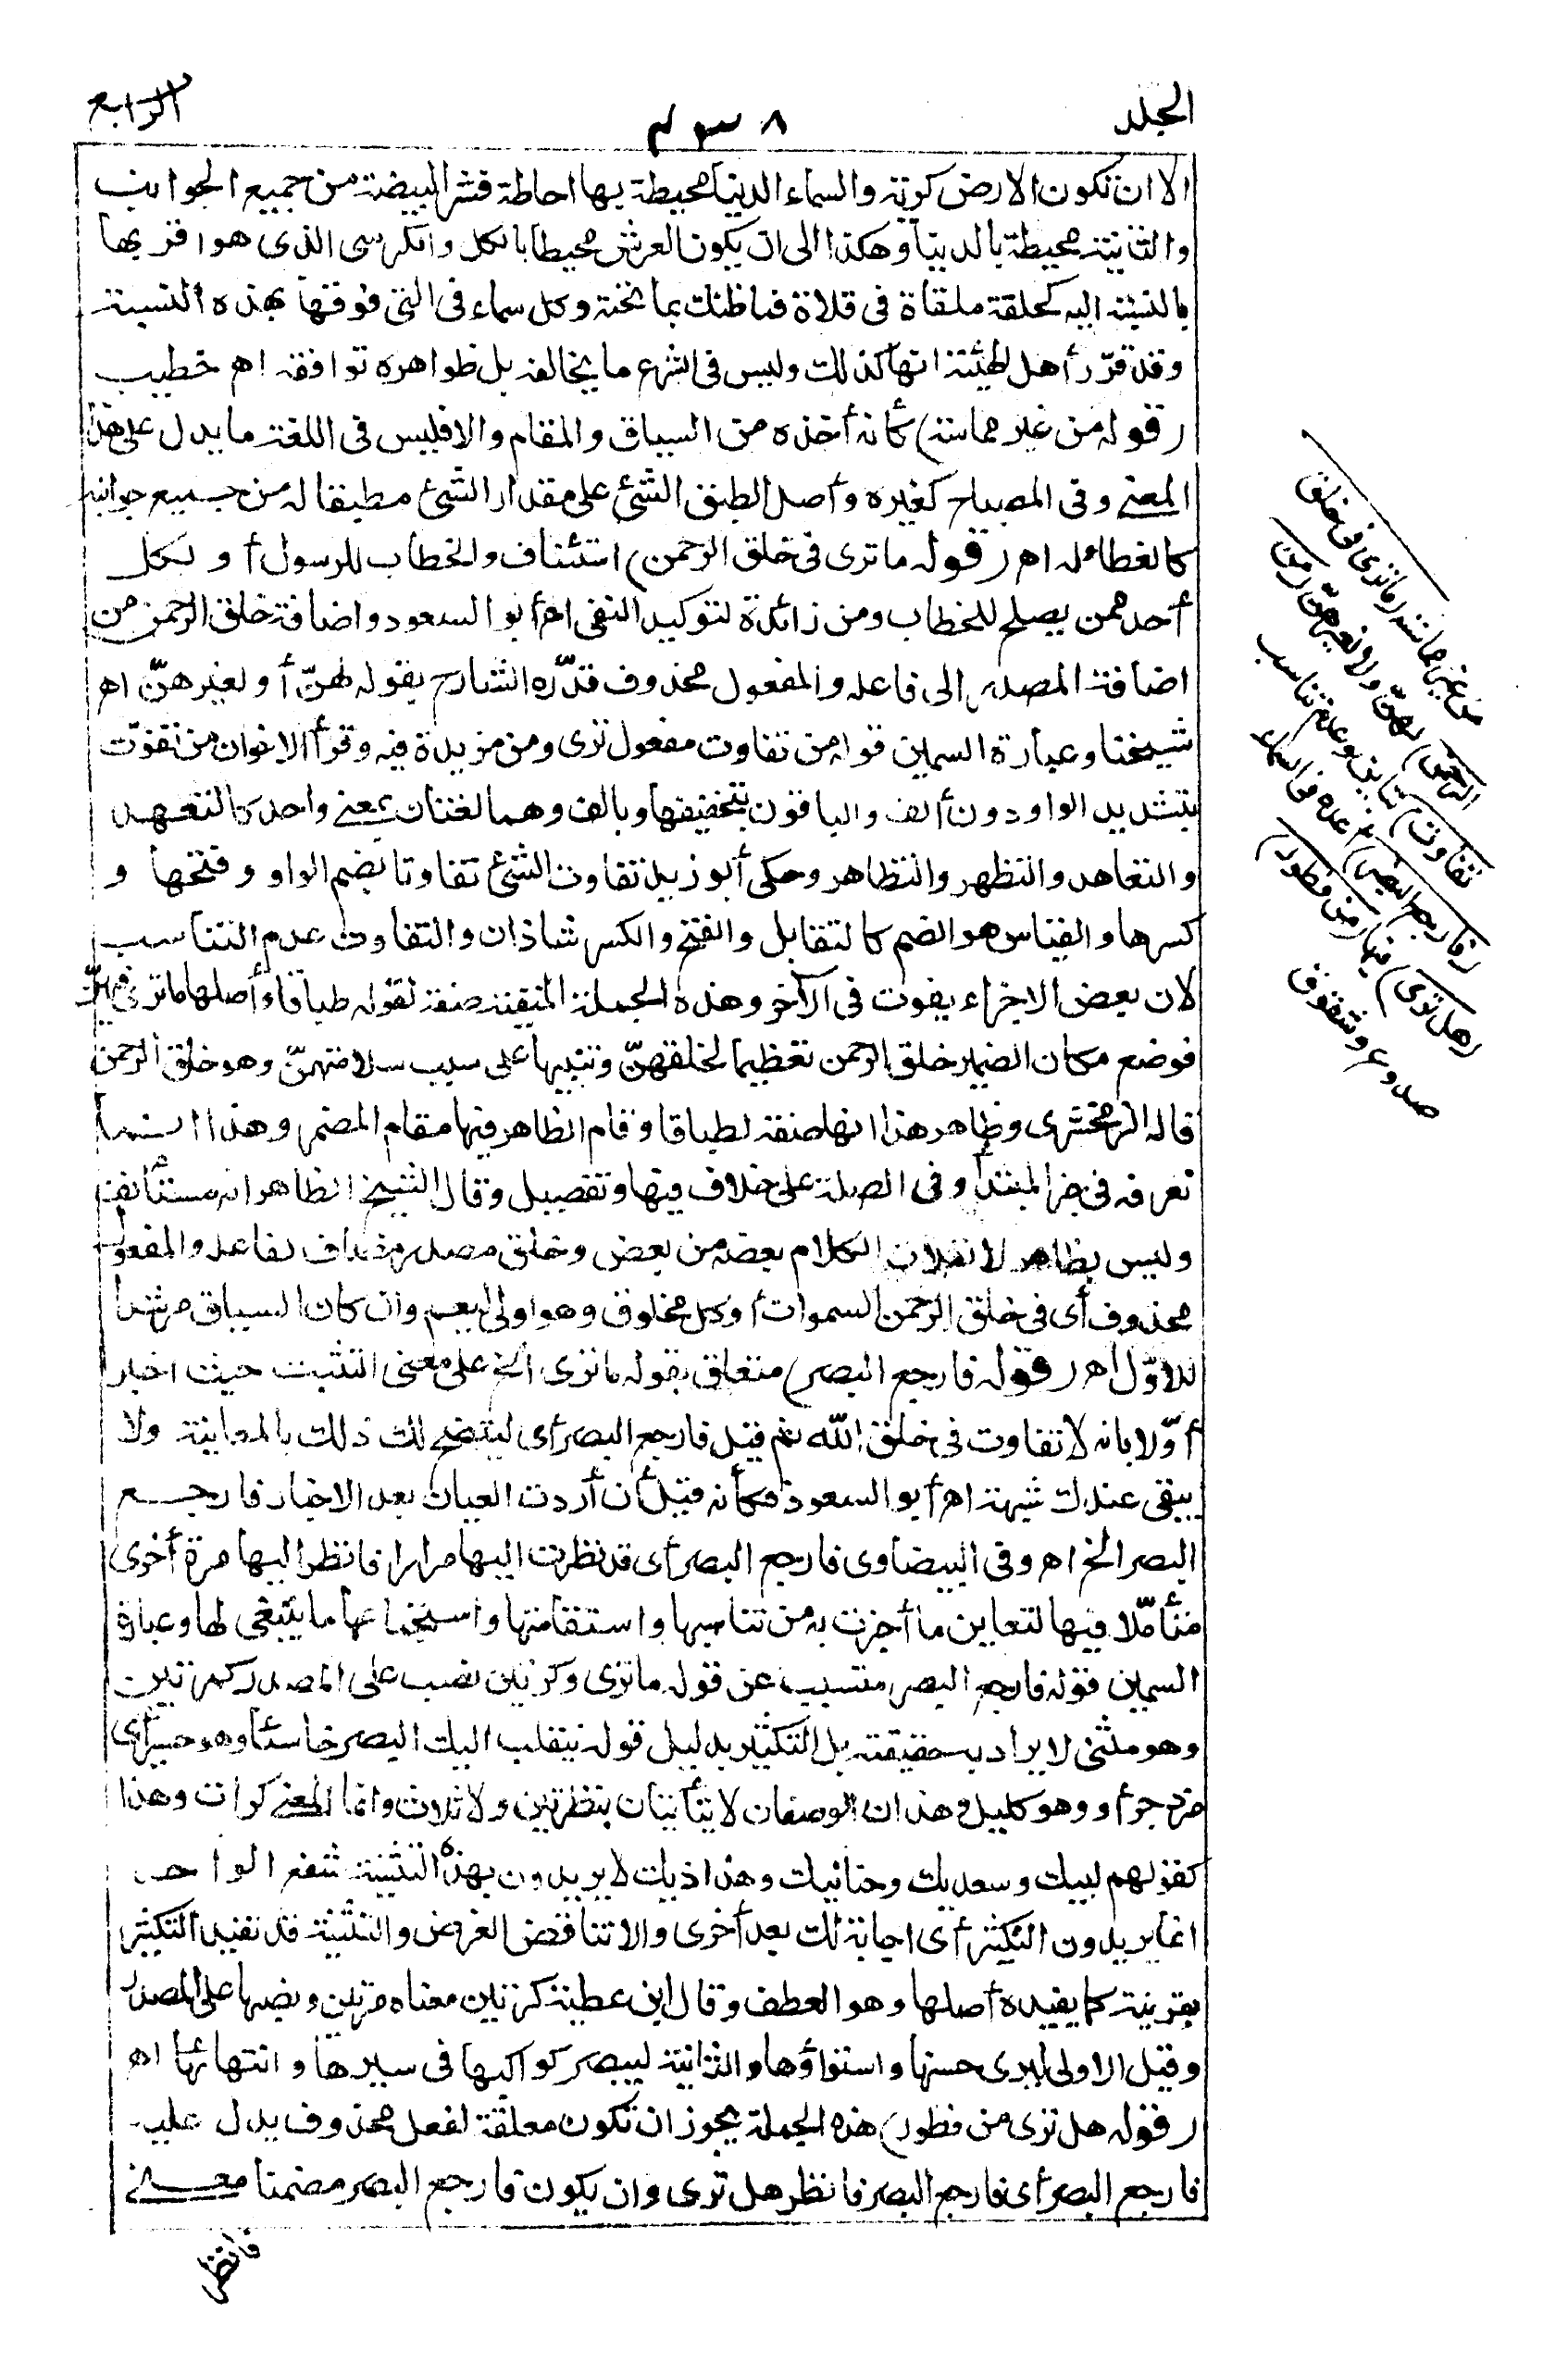 الجلد
٤٣٨
الرابع
الا ان تكون الارض كرية والسماء الدنيا محيطة بها احاطة قشر البيضة من جميع الجوانب
والثانية محيطة بالدنيا وهكذا الى ان يكون العرش محيطا بالكل والكرسى الذى هو اقربها
بالنسبة اليه كحلقة ملقاة فى فلاة فما ظنك بما تحته وكل سماء فى التى فوقها بهذه النسبة
وقد قرّر أهل الهيئة انها كذلك وليس فى الشرع ما يخالفه بل ظواهره توافقه اه خطيب
(قوله من غير مماسة) كأنه أخذه من السياق والمقام والا فليس فى اللغة ما يدل على هذا
المعنى وفى المصباح كغيره وأصل الطبق الشئ على مقدار الشئ مطبقا له من جميع جوانبه
كالغطاء له اه (قوله ما ترى فى خلق الرحمن) استئناف والخطاب للرسول أو لكل
أحد ممن يصلح للخطاب ومن زائدة لتوكيد النفى اه أبو السعود واضافة خلق الرحمن من
اضافة المصدر الى فاعله والمفعول محذوف قدّره الشارح بقوله لهنّ أو لغيرهنّ اه
شيخنا وعبارة السمين قوله من تفاوت مفعول ترى ومن مزيدة فيه وقرأ الاخوان من تفوّت
بتشديد الواو دون ألف والباقون بتخفيفها وبالف وهما لغتان بمعنى واحد كالتعهد
والتعاهد والتظهر والتظاهر وحكى أبو زيد تفاوت الشئ تفاوتا بضم الواو وفتحها و
كسرها والقياس هو الضم كالتقابل والفتح والكسر شاذان والتفاوت عدم التناسب
لان بعض الاجزاء يفوت فى الآخر وهذه الجملة المنفية صفة لقوله طباقا وأصلها ما ترى فيهنّ
فوضع مكان الضمير خلق الرحمن تعظيما لخلقهنّ وتنبيها على سبب سلامتهنّ وهو خلق الرحمن
قاله الزمخشرى وظاهر هذا انها صفة لطباقا وقام الظاهر فيها مقام المضمر وهذا انما
تعرفه فى خبر المبتدأ وفى الصلة على خلاف فيها وتفصيل وقال الشيخ الظاهر انه مستأنف
وليس بظاهر لانفلات الكلام بعضه من بعض وخلق مصدر مضاف لفاعله والمفعول
محذوف أى فى خلق الرحمن السموات أو كل مخلوق وهو اولى ليعم وان كان السياق مرشدا
للاوّل اه (قوله فارجع البصر) متعلق بقوله ما ترى الخ على معنى التثبت حيث اخبر
أوّلا بانه لا تفاوت فى خلق الله ثم قيل فارجع البصر أى ليتضح لك ذلك بالمعاينة ولا
يبقى عندك شبهة اه أبو السعود فكأنه قيل أن أردت العيان بعد الاخبار فارجع
البصر الخ اه وفى البيضاوى فارجع البصر أى قد نظرت اليها مرارا فانظر اليها مرة أخرى
متأمّلا فيها لتعاين ما أخبرت به من تناسبها واستقامتها واستجماعها ما ينبغى لها وعبارة
السمين قوله فارجع البصر متسبب عن قوله ما ترى وكرتين نصب على المصدر كمرتين
وهو مثنى لا يراد به حقيقته بل التكثير بدليل قوله ينقلب اليك البصر خاسئا وهو حسير أى
مزدجرا وهو كليل وهذان الوصفان لا يتأتيان بنظرتين ولا ثلاث وانما المعنى كرات وهذا
كقولهم لبيك وسعديك وحنانيك وهذاذيك لا يريدون بهذه التثنية شفع الواحد
انما يريدون التكثير أى اجابة لك بعد أخرى والا تناقض الغرض والتثنية قد تفيد التكثير
بقرينة كما يفيده أصلها وهو العطف وقال ابن عطية كرتين معناه مرتين ونصبها على المصدر
وقيل الاولى ليرى حسنها واستواؤها والثانية ليبصر كواكبها فى سيرها وانتهائها اه
(قوله هل ترى من فطور) هذه الجملة يجوز ان تكون معلقة لفعل محذوف يدل عليه
فارجع البصر أى فارجع البصر فانظر هل ترى وان يكون فارجع البصر مضمنا معنى
فانظر
من غير مماسة (ما ترى فى خلق
الرحمن) لهنّ ولا لغيرهنّ (من
تفاوت) تباين وعدم تناسب
(فارجع البصر) أعده فى السماء
(هل ترى) فيها (من فطور)
صدوع وشقوق